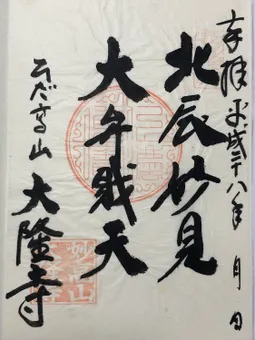 奉拝 平成二十八年 月 日
北辰妙見
大弁財天
ひだ高山 大隆寺